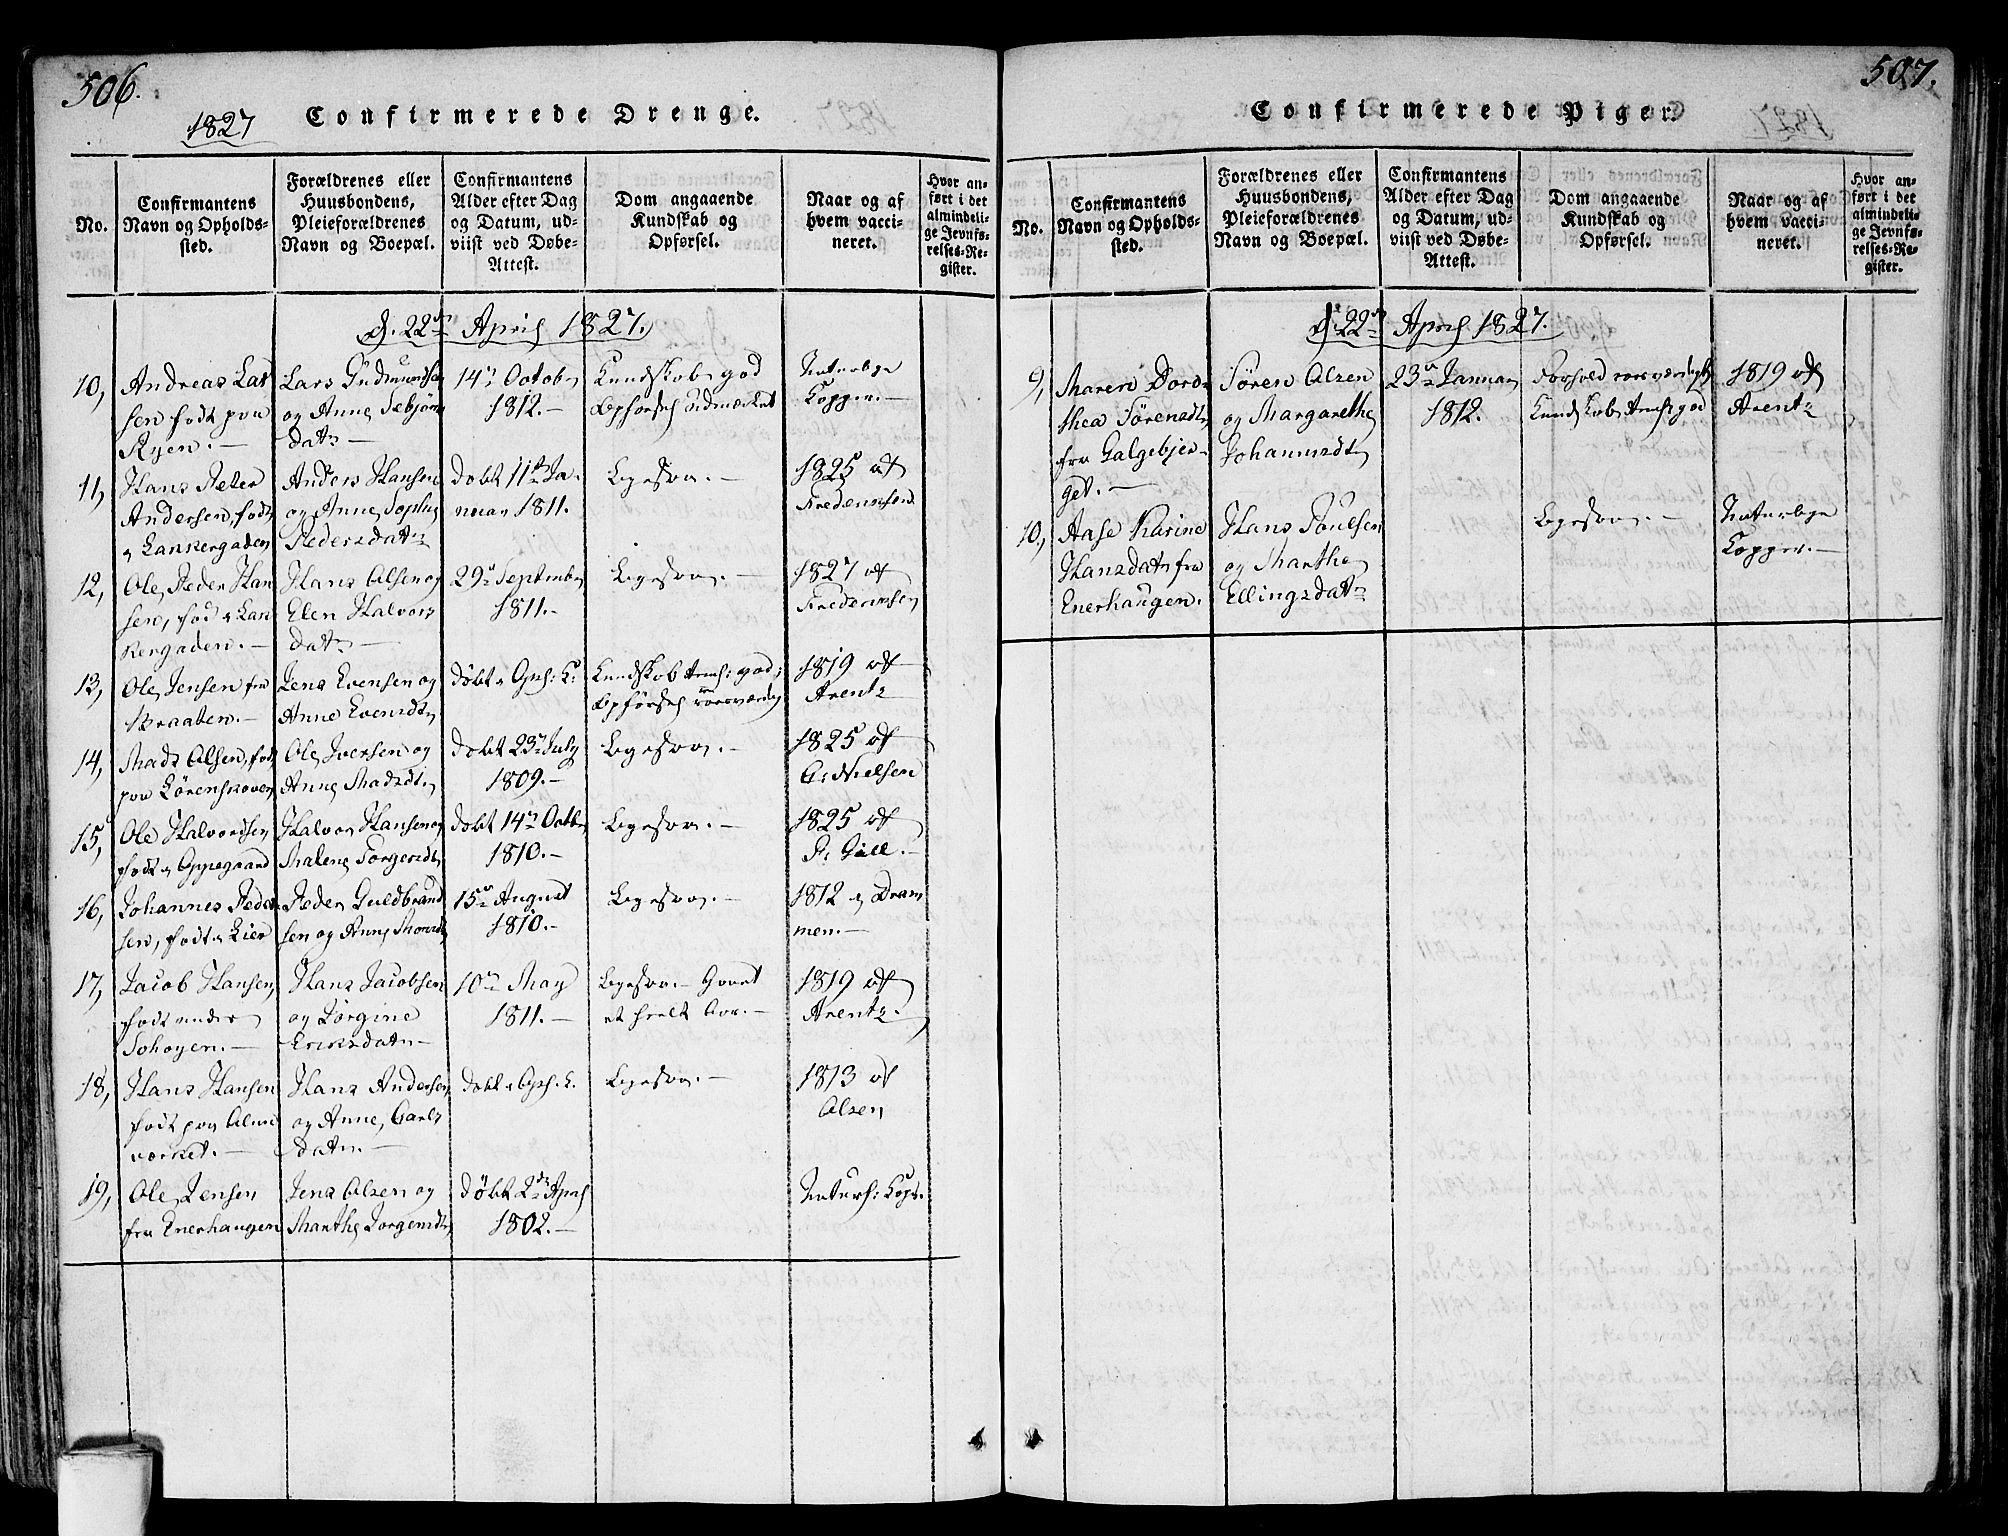 506.
1827
Confirmerede Drenge.
No.
Confirmantens
Navn og Opholds-
sted.
Forældrenes eller
Huusbondens,
Pleieforældrenes
Navn og Boepæl.
Confirmantens
Alder efter Dag
og Datum, ud-
viist ved Døbe-
Attest.
Dom angaaende
Kundskab og
Opførsel.
Naar og af
hvem vacci-
neret.
Hvor an-
ført i det
almindeli-
ge Jevnfø-
relses-Re-
gister.
d. 22de April 1827.
10,
Andreas Lar
sen født paa
Ryen.
Lars Gudmundsen
og Anne Sebjørns
datr
14de Octobr
1812.
Kundskab god
Opførsel udmærket
Naturlige
Kopper.
11,
Hans Peter
Andersen, født
i Lakkergaden
Anders Hansen
og Anne Sophie
Pedersdatr
døbt 11te Ja-
nuar 1811.
Ligesaa.
1825 af
Frederiksen
12,
Ole Peder Han
sen, fød i Lak
kergaden.
Hans Olsen og
Elen Halvors
datr
29de Septembr
1811.
Ligesaa.
1827 af
Frederiksen
13,
Ole Jensen fra
Braaten.
Jens Evensen og
Anne Evensdtr
døbt i Opsl: K.
Kundskab temel: god;
Opførsel roesværdig
1819 af
Arentz
14,
Mads Olsen, født
paa Lørenskoven
Ole Iversen og
Anne Madsdtr
døbt 23de July
1809.
Ligesaa.
1825 af
C: Nielsen
15,
Ole Halvordsen
født i Oppegaard
Halvor Hansen og
Malene Torgersdtr
døbt 14de Octbr
1810.
Ligesaa.
1825 af
P. Gill.
16,
Johannes Peder
sen, født i Lier
Peder Guldbrand
sen og Anne Monsdtr
15de August
1810.
Ligesaa.
1812 i Dram
men.
17,
Jacob Hansen,
født under
Sohøyen.
Hans Jacobsen
og Jørgine
Eriksdatr
10de May
1811.
Ligesaa. Gaaet
et heelt Aar.
1819 af
Arentz.
18,
Hans Hansen
født paa Alun
værket.
Hans Andersen
og Anne Carls
datr.
døbt i Opsl. K.
Ligesaa.
1813 af
Olsen
19,
Ole Jensen
fra Enerhaugen
Jens Olsen og
Marthe Jørgensdtr
døbt 2den April
1802.
Naturl: Kopr.
507.
Confirmerede Piger.
No.
Confirmantens
Navn og Opholds-
sted.
Forældrenes eller
Huusbondens,
Pleieforældrenes
Navn og Boepæl.
Confirmantens
Alder efter Dag
og Datum, ud-
viist ved Døbe-
Attest.
Dom angaaende
Kundskab og
Opførsel.
Naar og af
hvem vacci-
neret.
Hvor an-
ført i det
almindeli-
ge Jevnfø-
relses-Re-
gister.
d. 22de April 1827.
9,
Maren Dord-
thea Sørensdtr
fra Galgebjer-
get.
Søren Olsen
og Margarethe
Johannsdtr
23de Januar
1812.
Forhold roesværdigt
Kundskab temel: god
1819 af
Arentz
10,
Aase Karine
Hansdatr fra
Enerhaugen.
Hans Poulsen
og Marthe
Ellingsdatr
Ligesaa.
Naturlige
Kopper.